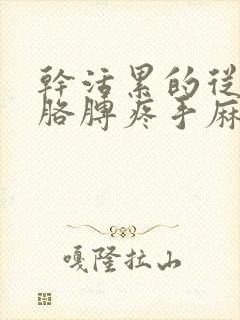 幹活累的從
胳膊疼手麻
嘎隆拉山